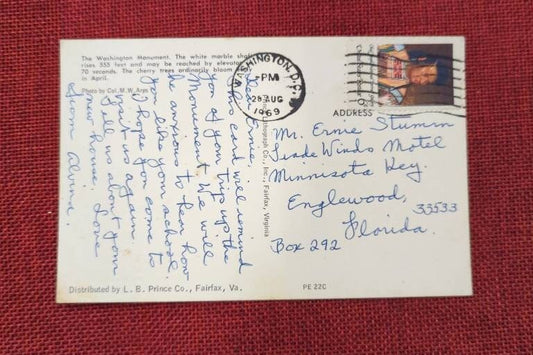 The Washington Monument. The white marble shaft
rises 555 feet and may be reached by elevator
70 seconds. The cherry trees ordinarily bloom
in April.
Photo by Col. M. W. Arps
WASHINGTON, D.C.
PM
28 AUG
1969
ADDRESS
Dear Ernie,
This card will remind
you of your trip up the
Monument. We will
be anxious to hear how
you like your school.
I hope you come to
visit us again.
Tell us about your
new house. Love
from Alvina.
Mr. Ernie Stumm
Trade Winds Motel
Minnisota Key.
Englewood, 33533
Florida.
Box 292
Co., Inc., Fairfax, Virginia
Distributed by L. B. Prince Co., Fairfax, Va.
PE 22C